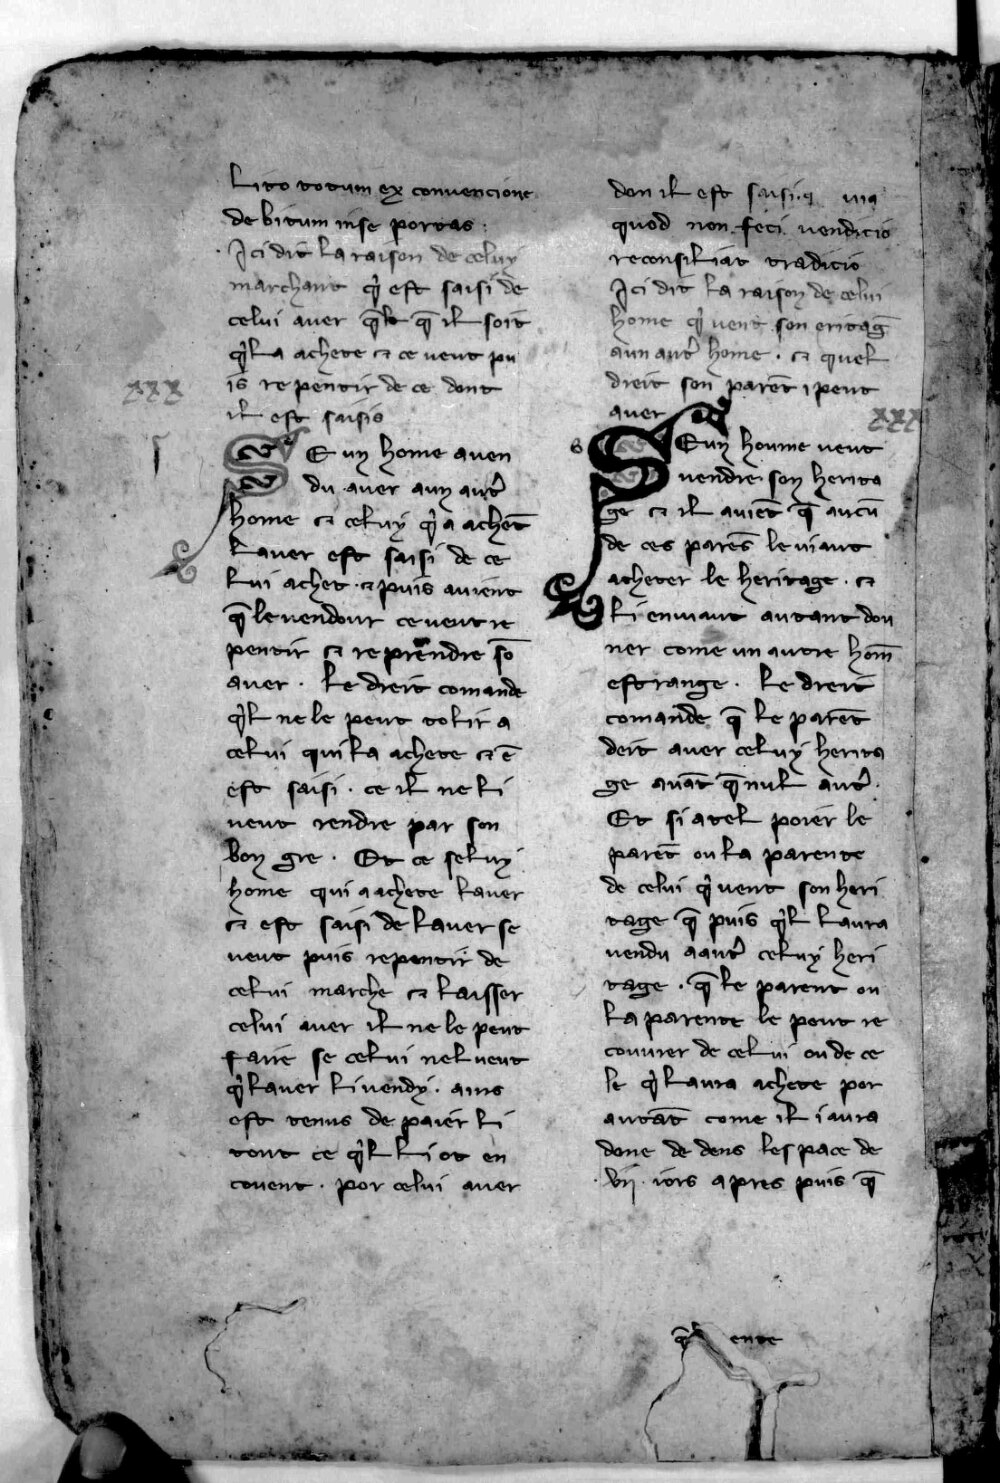 lito totum ex convencione
debitum in se portas :
Ici dit la raison de celuy
marchant q̓ est saisi de
celui aver q̄l q̄ il soit
q̓l a achete ⁊ ce veut pu
is repentir de ce dont
il est saisis
xxx
SE uy home a ven
du aver a un autr̓
home ⁊ celuy q̓ a achet̄
laver est saisi de ce
lui achet · ⁊ puis avient
q̄ le vendour ce veut re
pentir ⁊ reprendre sō
aver · le dreit comande
q̓l ne le peut tolir a
celui qui la achete ⁊ ē
est saisi · ce il ne li
veut rendre par son
bon gre · Et ce seluy
home qui a achete laver
⁊ est saisi de laver se
veut puis repentir de
celui marche ⁊ laisser
celui aver il ne le peut
faire se celui nel veut
q̓ laver li vendy · ains
est tenus de paier li
tout ce q̓l li ot en
covent · por celui aver
don il est saisi · q
quod non feci vendicio
reconsiliat tradicio
Ici dit la raison de celui
home q̓ vent son eritaḡ
a un autr̓ home · ⁊ quel
dreit son parēt i peut
aver
xxxi
SE uy houme veut
vendre son herita
ge ⁊ il aviēt q̄ aucū
de ces parēs le viaut
acheter le heritage · ⁊
li en viaut autant don
ner come un autre hom̄
estrange · le dreit
comande q̄ le parēt
deit aver celuy herita
ge avāt q̄ nul autr̓ ·
Et si a tel poier le
parēt ou la parente
de celui q̓ vent son heri
tage q̄ puis q̓l laura
vendu a autr̓ celuy heri
tage · q̄ le parent ou
la parente le peut re
couvrer de celui ou de ce
le q̓ laura achete por
autāt come il i aura
done de dens lespace de
· vij · iors apres puis q̄
ente